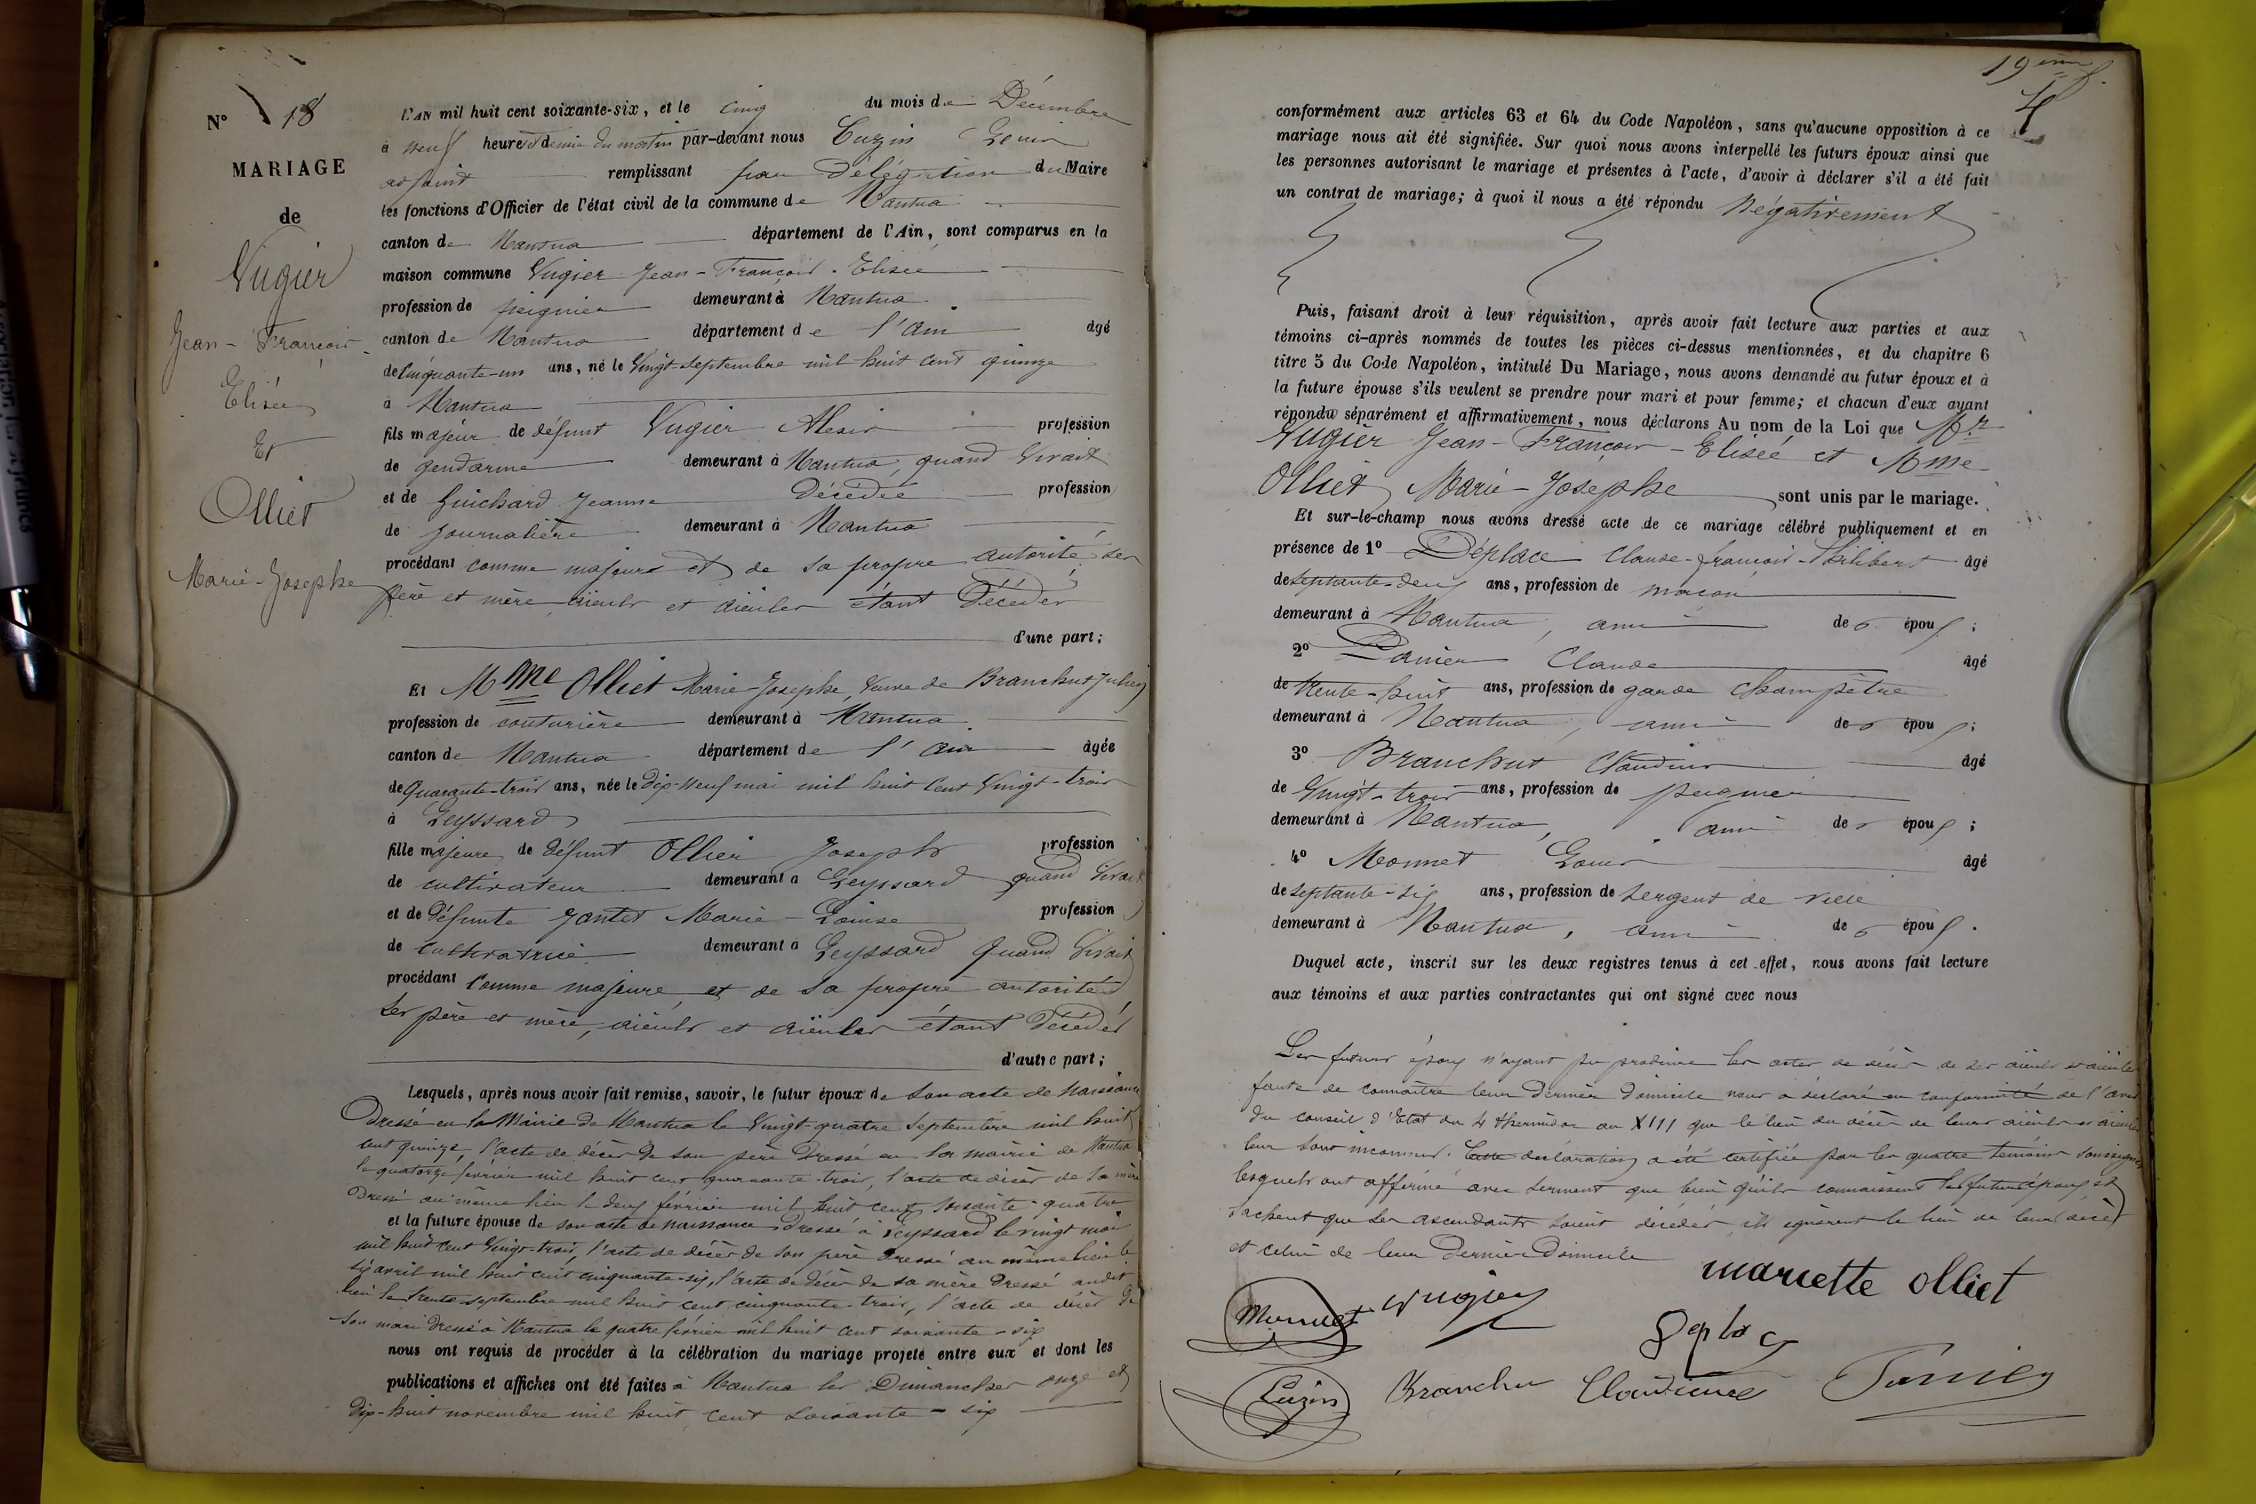 N° 18
MARIAGE
de
Vugier
Jean-François
Elisée
Et
Olliet
Marie-Josephe
L'AN mil huit cent soixante-six, et le cinq du mois de Décembre
à neuf heures & demie du matin par-devant nous Cuzin Louis
adjoint remplissant par Délégation du Maire
les fonctions d'Officier de l'état civil de la commune de Nantua
canton de Nantua département de l'Ain, sont comparus en la
maison commune Vugier Jean-François-Elisée
profession de peignier demeurant à Nantua
canton de Nantua département de l'ain âgé
de Cinquante-un ans, né le Vingt-septembre mil huit cent quinze
à Nantua
fils majeur de défunt Vugier Alexis profession
de gendarme demeurant à Nantua, quand Vivait
et de Guichard Jeanne Décédée profession
de journalière demeurant à Nantua
procédant comme majeur et de sa propre autorité ses
père et mère aieuls et aieules étant Décédés
d'une part;
Et Mme Olliet Marie-Josephe, Veuve de Branchut Julien
profession de couturière demeurant à Nantua
canton de Nantua département de l'ain âgée
de Quarante-trois ans, née le Dix-neuf mai mil huit cent Vingt-trois
à Leyssard
fille majeure de défunt Ollier Joseph profession
de cultivateur demeurant à Leyssard quand Vivait
et de défunte Jantet Marie-Louise profession
de cultivatrice demeurant à Leyssard quand Vivait
procédant Comme majeure et de sa propre autorité
ses père et mère, aieuls et aieules étant Décédés
d'autre part;
Lesquels, après nous avoir fait remise, savoir, le futur époux de son acte de naissance
Dressé en la Mairie de Nantua le Vingt-quatre Septembre mil huit
cent quinze, l'acte de décès de son père Dressé en la mairie de Nantua
le quatorze février mil huit cent quarante-trois, l'acte de décès de sa mère
Dressé au même lieu le deux février mil huit cent soixante-quatre
et la future épouse de son acte de naissance dressé à Leyssard le vingt mai
mil huit cent Vingt-trois, l'acte de décès de son père Dressé au même lieu le
six avril mil huit cent cinquante-six, l'acte de décès de sa mère Dressé audit
lieu le trente septembre mil huit cent cinquante-trois, l'acte de décès de
son mari Dressé à Nantua le quatre février mil huit cent soixante-six
nous ont requis de procéder à la célébration du mariage projeté entre eux et dont les
publications et affiches ont été faites à Nantua les Dimanches onze et
Dix-huit novembre mil huit cent soixante-six
19ème f.
conformément aux articles 63 et 64 du Code Napoléon, sans qu'aucune opposition à ce
mariage nous ait été signifiée. Sur quoi nous avons interpellé les futurs époux ainsi que
les personnes autorisant le mariage et présentes à l'acte, d'avoir à déclarer s'il a été fait
un contrat de mariage; à quoi il nous a été répondu Négativement
Puis, faisant droit à leur réquisition, après avoir fait lecture aux parties et aux
témoins ci-après nommés de toutes les pièces ci-dessus mentionnées, et du chapitre 6
titre 5 du Code Napoléon, intitulé Du Mariage, nous avons demandé au futur époux et à
la future épouse s'ils veulent se prendre pour mari et pour femme; et chacun d'eux ayant
répondu séparément et affirmativement, nous déclarons Au nom de la Loi que Mr
Vugier Jean-François-Elisée et Mme
Olliet Marie-Josephe sont unis par le mariage.
Et sur-le-champ nous avons dressé acte de ce mariage célébré publiquement et en
présence de 1° Déplace Claude-françois-Philibert âgé
de septante-deux ans, profession de maçon
demeurant à Nantua, ami des époux;
2° Panier Claude âgé
de trente-huit ans, profession de garde champêtre
demeurant à Nantua, ami des époux;
3° Branchut Claudius âgé
de Vingt-trois ans, profession de peignier
demeurant à Nantua, ami des époux;
4° Monnet Louis âgé
de septante-six ans, profession de sergent de ville
demeurant à Nantua, ami des époux.
Duquel acte, inscrit sur les deux registres tenus à cet effet, nous avons fait lecture
aux témoins et aux parties contractantes qui ont signé avec nous
Les futurs époux n'ayant pu produire les actes de décès de ses aieuls et aieules
faute de connaître leur dernier domicile nous a déclaré en conformité de l'avis
du conseil d'Etat du 4 thermidor an XIII que le lieu du décès de leurs aieuls et aieules
leur sont inconnus. Cette déclaration a été certifiée par les quatre témoins soussignés
lesquels ont affermé avec serment que bien qu'ils connaissent les futurs époux et
sachent que ses ascendants soient décédés, ils ignorent le lieu de leur décès
et celui de leur Dernier Domicile
mariette olliet
Monnet Vugier
Deplace
Cuzin Branchu Claudius Panier